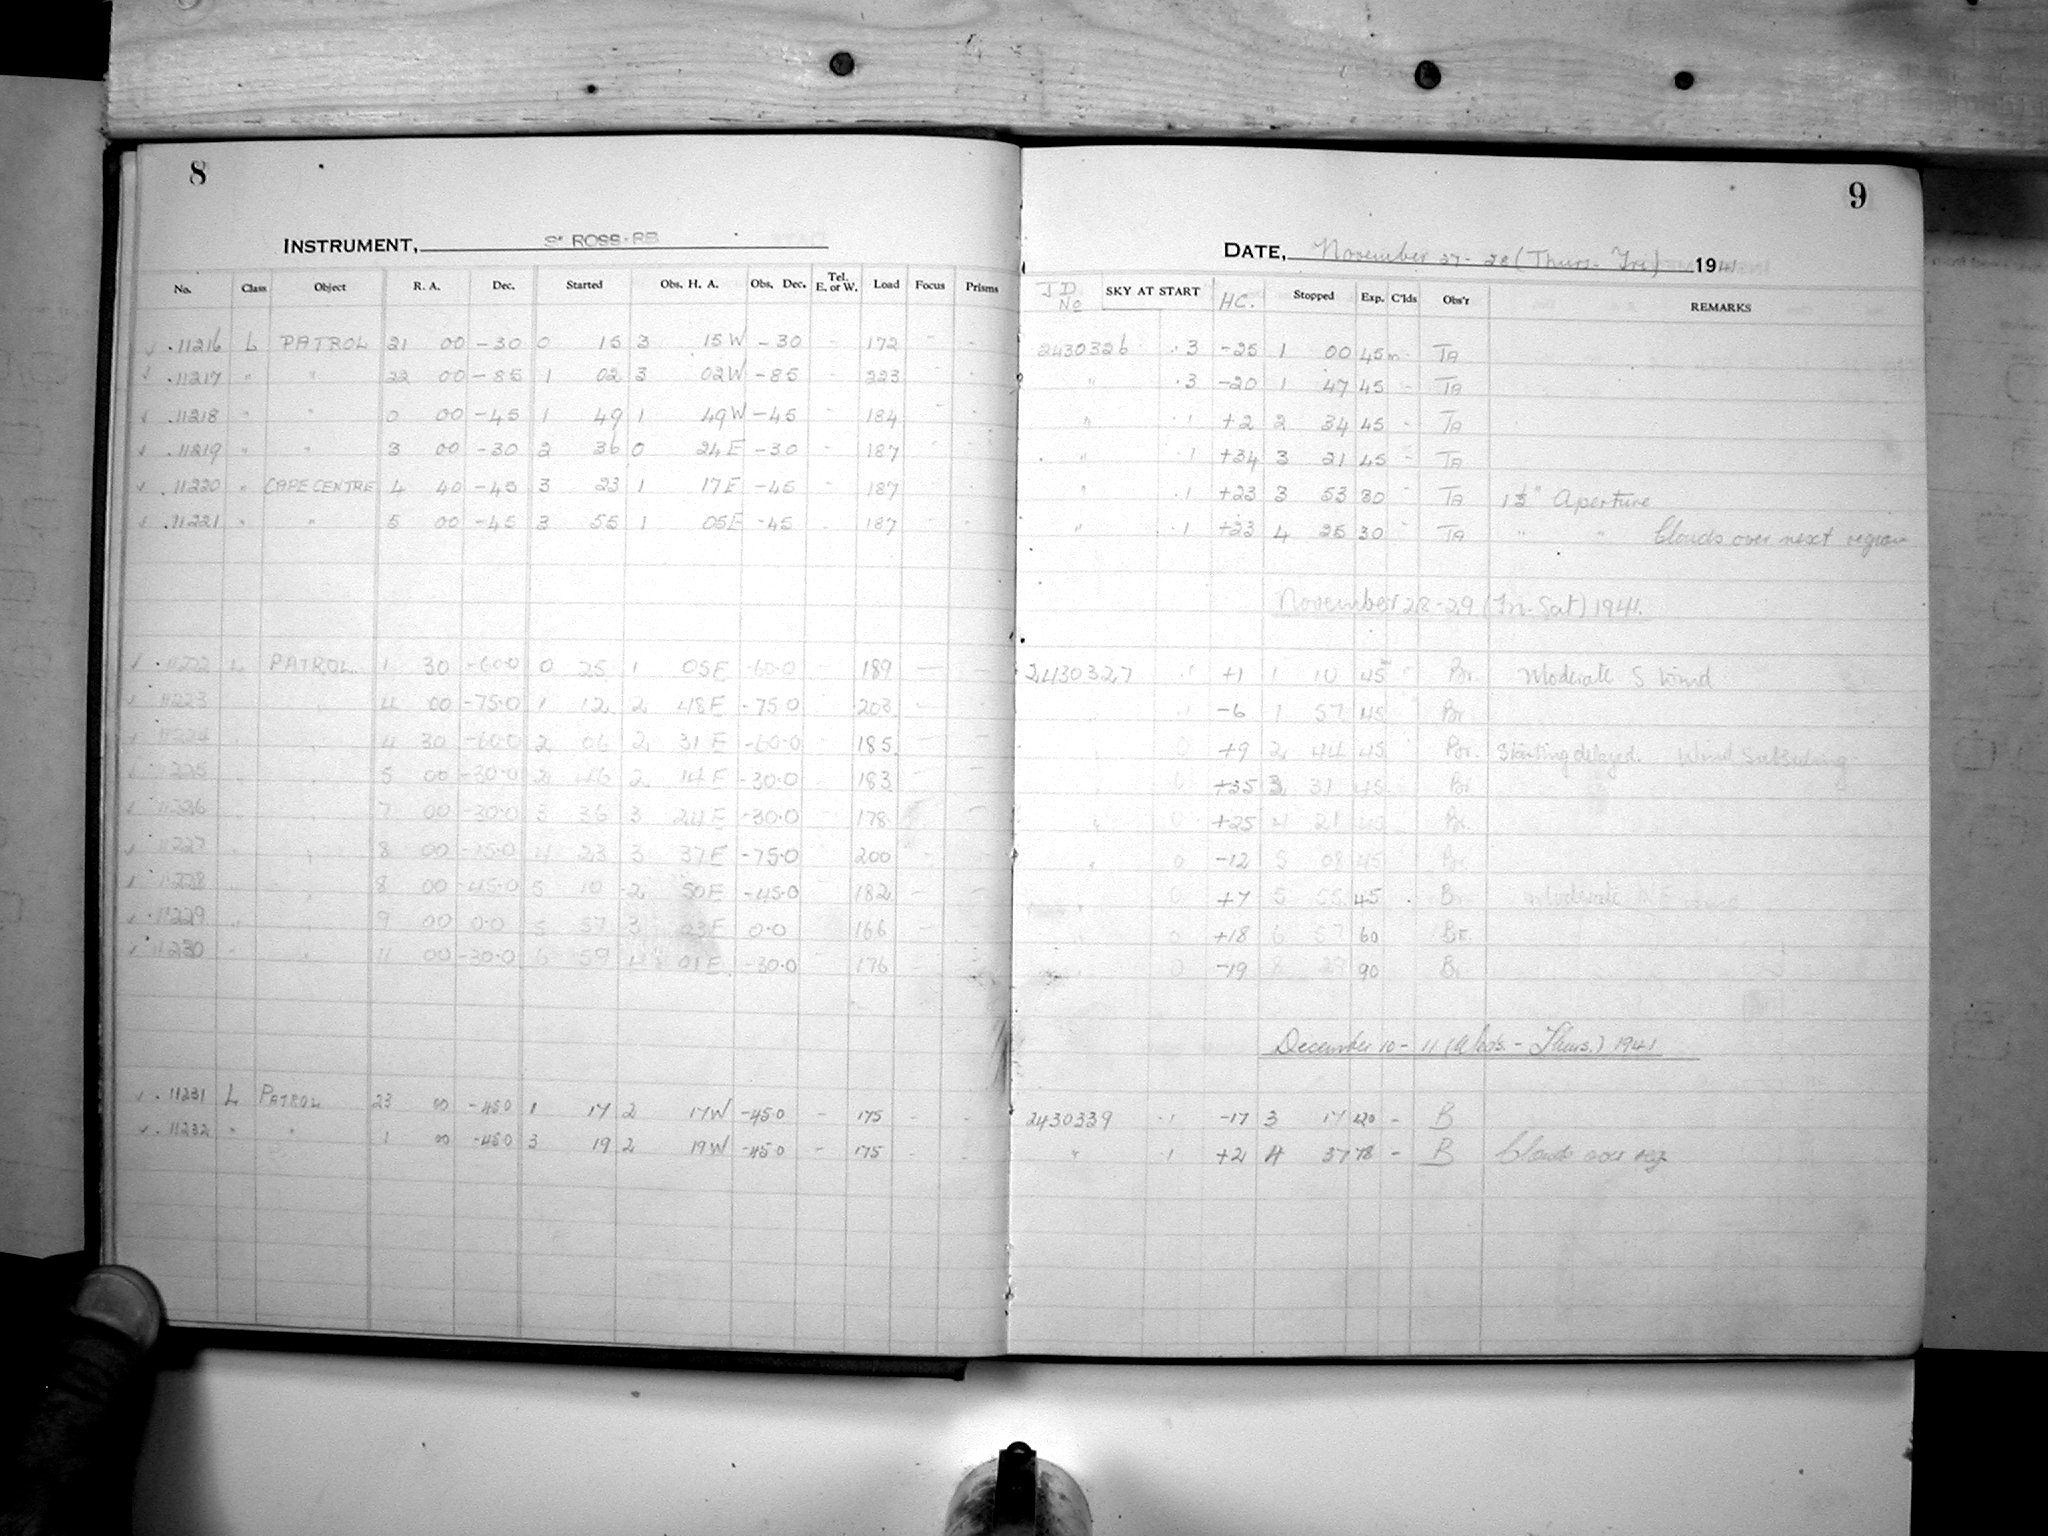 8
INSTRUMENT, ROSS-RB
No. Class Object R. A. Dec. Started Obs. H. A. Obs. Dec. Tel. E. or W. Load Focus Prisms
.11216 L PATROL 21 00 -30 0 15 3 15 W -30 - 172 - -
.11217 " " 22 00 -85 1 02 3 02W -85 - 223 - -
.11218 " " 0 00 -45 1 49 1 49W -45 - 184 - -
.11219 " " 3 00 -30 2 36 0 24E -30 - 187 - -
.11220 " CAPE CENTRE 4 40 -45 3 23 1 17E -45 - 187 - -
.11221 " " 5 00 -45 3 55 1 05E -45 - 187 - -
.11222 L PATROL 1 30 -60.0 0 25 1 05E -60.0 - 189 - -
11223 " 4 00 -75.0 1 12 2 48E -75.0 - 203 - -
11224 " 4 30 -60.0 2 06 2 31E -60.0 - 185 - -
11225 " 5 00 -30.0 2 46 2 14E -30.0 - 183 - -
11226 " 7 00 -30.0 3 36 3 24E -30.0 - 178 - -
11227 " 8 00 -75.0 4 23 3 37E -75.0 - 200 - -
11228 " 8 00 -45.0 5 10 2 50E -45.0 - 182 - -
.11229 " " 9 00 0.0 5 57 3 03E 0.0 - 166 - -
.11230 " " 11 00 -30.0 6 59 4 01E -30.0 - 176 - -
.11231 L PATROL 23 00 -45.0 1 17 2 17W -45.0 - 175 - -
.11232 " " 1 00 -45.0 3 19 2 19W -45.0 - 175 - -
9
DATE, November 27-28 (Thurs-Fri) 1941
J D No SKY AT START HC. Stopped Exp. C'lds Obs'r REMARKS
2430326 .3 -25 1 00 45m - TA
" .3 -20 1 47 45 - TA
" .1 +2 2 34 45 - TA
" .1 +34 3 21 45 - TA
" .1 +23 3 53 30 - TA 1½" Aperture
" .1 +23 4 25 30 - TA " " Clouds over next region
November 28-29 (Fri-Sat) 1941.
2430327 .1 +1 1 10 45 Br. Moderate S Wind
.1 -6 1 57 45 Br
0 +9 2 44 45 Br. Starting delayed. Wind Subsiding
0 +35 3 31 45 Br
" 0 +25 4 21 45 Br.
" 0 -12 5 08 45 Br.
" 0 +7 5 55 45 Br Moderate wind
" 0 +18 6 57 60 Br.
" 0 -19 8 29 90 Br
December 10-11 (Weds.-Thurs.) 1941
2430339 .1 -17 3 17 120 - B
" .1 +21 4 37 78 - B Clouds over reg